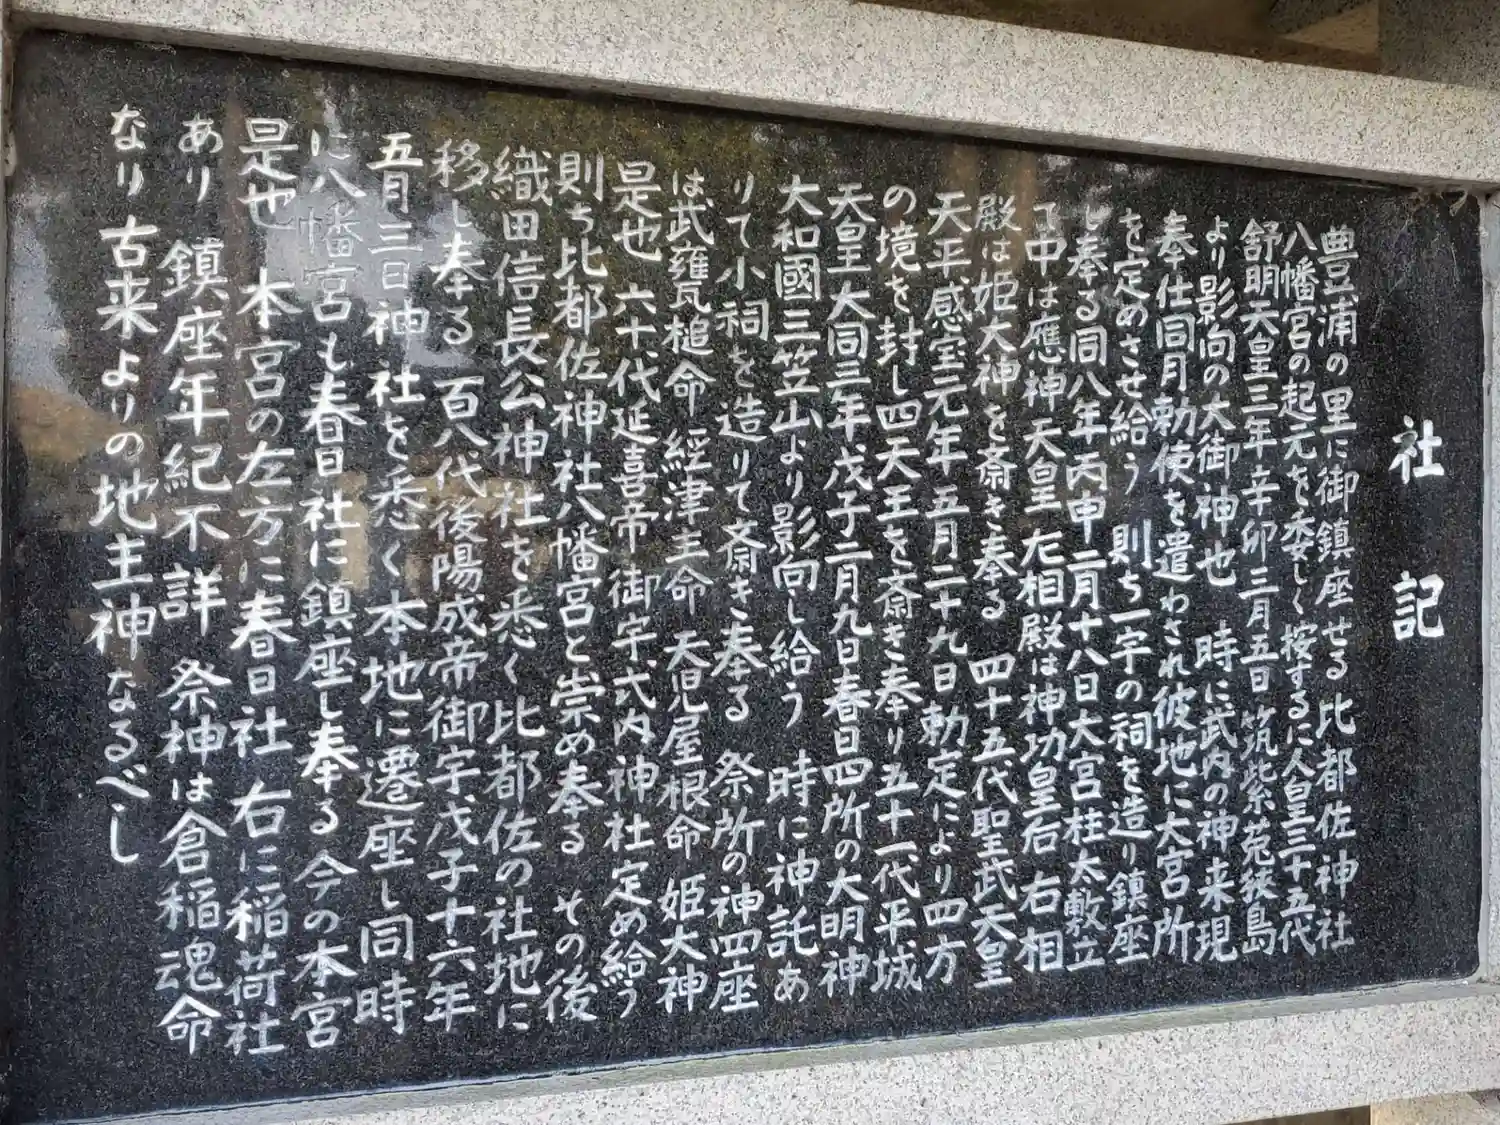 社記
豊浦の里に御鎮座せる比都佐神社
八幡宮の起元を委しく按するに人皇三十五代
舒明天皇三年辛卯三月五日筑紫菟狹島
より影向の大御神也　時に武内の神来現
奉仕同月勅使を遣わされ彼地に大宮所
を定めさせ給う　則ち一宇の祠を造り鎮座
し奉る同八年丙申二月十八日大宮柱太敷立
て中は應神天皇　左相殿は神功皇后　右相
殿は姫大神を斎き奉る　四十五代聖武天皇
天平感宝元年五月二十九日勅定により四方
の境を封し四天王を斎き奉り五十一代平城
天皇大同三年戊子二月九日春日四所の大明神
大和國三笠山より影向し給う　時に神託あ
りて小祠を造りて斎き奉る　祭所の神四座
は武甕槌命　經津主命　天児屋根命　姫大神
是也　六十代延喜帝御宇式内神社定め給う
則ち比都佐神社八幡宮と崇め奉る　その後
織田信長公神社を悉く比都佐の社地に
移し奉る　百八代後陽成帝御宇戊子十六年
五月三日神社を悉く本地に遷座し同時
に八幡宮も春日社に鎮座し奉る　今の本宮
是也　本宮の左方に春日社　右に稲荷社
あり　鎮座年紀不詳　祭神は倉稲魂命
なり　古来よりの地主神なるべし